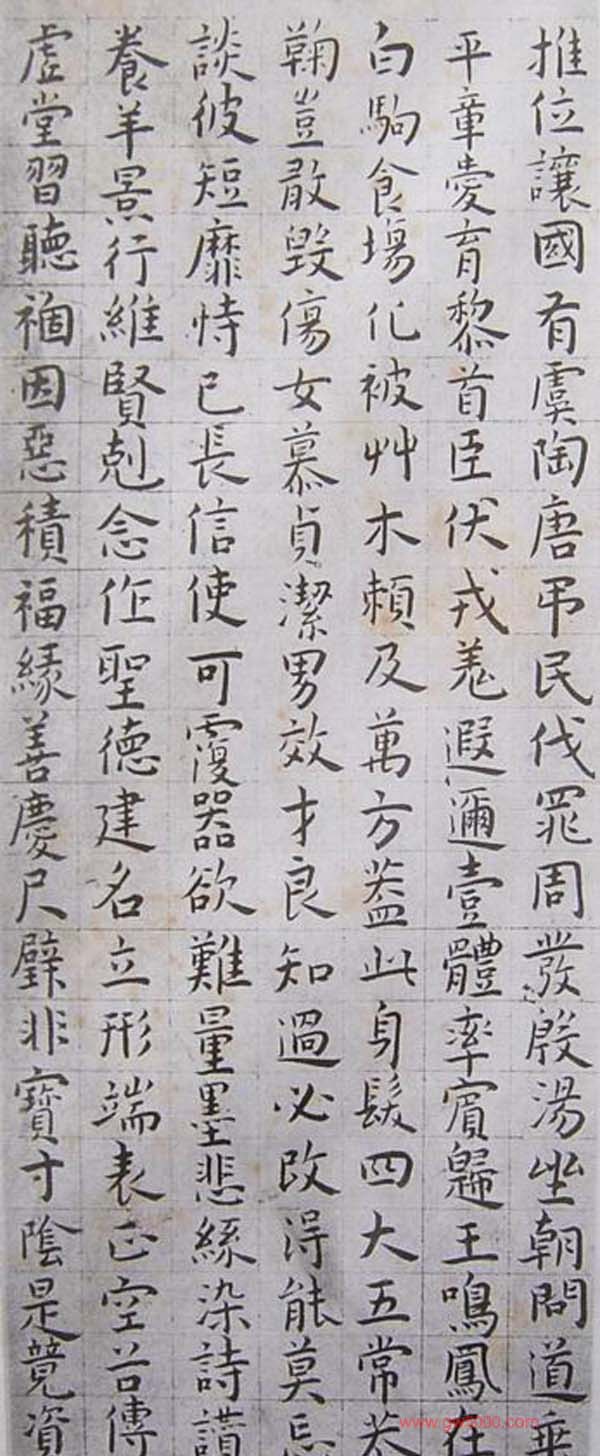 推位讓國有虞陶唐弔民伐罪周發殷湯坐朝問道垂
平章愛育黎首臣伏戎羌遐邇壹體率賓歸王鳴鳳在
白駒食場化被艸木賴及萬方蓋此身髮四大五常恭
鞠豈敢毀傷女慕貞潔男效才良知過必改得能莫忘
談彼短靡恃己長信使可覆器欲難量墨悲絲染詩讚
羔羊景行維賢剋念作聖德建名立形端表正空谷傳
虛堂習聽禍因惡積福緣善慶尺璧非寶寸陰是競資